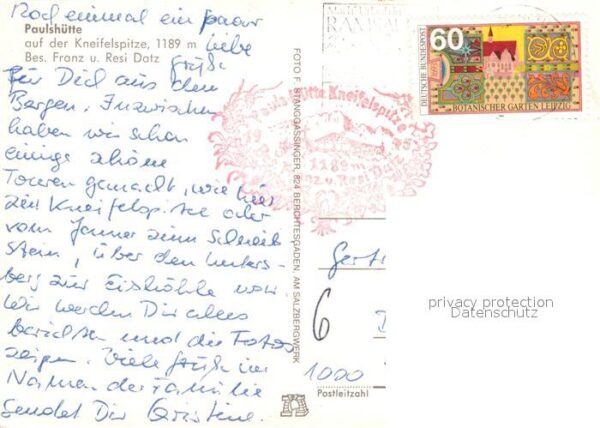 Noch einmal ein paar
Paulshütte
auf der Kneifelspitze, 1189 m
liebe
Bes. Franz u. Resi Datz
Grüße
für Dich aus den
Bergen. Inzwischen
haben wir schon
einige schöne
Touren gemacht, wie hier
zur Kneifelspitze oder
vom Jenner zum Schneib
stein, über den Unters-
berg zur Eishöhle
Wir werden Dir alles
berichten und die Fotos
zeigen. Viele Grüße im
Namen der Familie
sendet Dir Christine.
FOTO F. STANGGASSINGER, 824 BERCHTESGADEN, AM SALZBERGWERK
RAMSAU
60
DEUTSCHE BUNDESPOST
BOTANISCHER GARTEN LEIPZIG
Paulshütte Kneifelspitze
1189 m
Franz u. Resi Datz
Gert
6
1000
Postleitzahl
privacy protection
Datenschutz